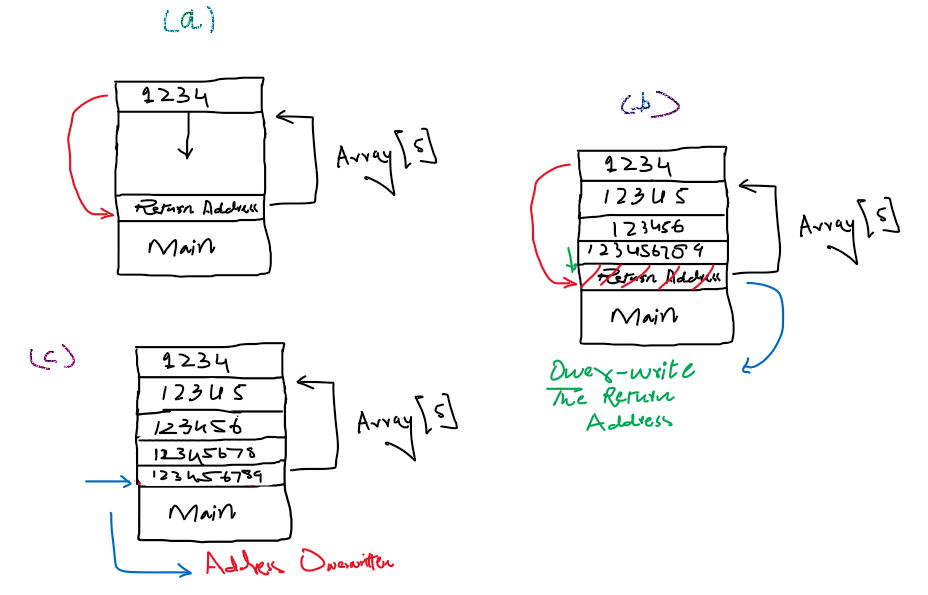 (a)
1234
Return Address
Main
Array[5]
(b)
1234
12345
123456
123456789
Return Address
Main
Array[5]
Over-write
The Return
Address
(c)
1234
12345
123456
12345678
123456789
Main
Array[5]
Address Overwritten